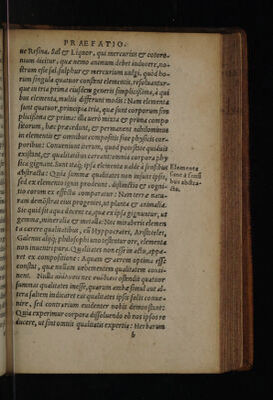 PRAEFATIO.
ue Resina, Sal & Liquor, qui mercurius & cætero-
num dicitur, quæ nemo animum debet inducere, no-
strum esse sal, sulphur & mercurium uulgi. quòd ho-
rum singula quatuor constent elementis, resoluantur-
que in tria prima eiusdem generis simplicissima, à qui
bus elementa, multis differunt modis: Nam elementa
sunt quatuor, principia tria, quæ sunt corporum sim
plicissima & prima: illa uerò mixta & prima compo
sitorum, hæc præcedunt, & permanent nobilominus
in elementis & omnibus compositis siue physicis cor
poribus: Conueniunt uerum, quòd potissitè quiduis
existunt, & qualitatibus careant omnia corpora phy
sica gignant. Sunt itaque ipsa elementa nudè à sensibus
abstracta: Quia summæ qualitates non insunt ipsis,
sed ex elementis ignis prodeunt. distinctio & cognitio
eorum ex effectu comparatur: Nam terræ natu-
ram demonstrat eius progenies, ut planta & animalia.
Sic quid sit aqua docent ea, quæ ex ipsa gignuntur, ut
gemmæ, mineralia & metalla: Nec miraberis elemen
ta carere qualitatibus, cùm Hyppocrates, Aristoteles,
Galenus alijq; philosophi uno testentur ore, elementa
non inueniri pura: Qualitates non esse in actu, appa-
ret ex compositione: Aquam & aërem optima esse
constat, quæ nullam uehementem qualitatem conti-
nent.
summas qualitates inesse, quarum ambæ simul aut al-
tera saltem indicaret eas qualitates ipsis satis conue-
nire, sed contrarium euidenter nobis demonstrat:
Quia experimur corpora dissoluendo eò nos ipsos re
ducere, ut sint omnis qualitatis expertia: Herbarum
b
Elementa
siue à sensi
bus abstra-
cta.